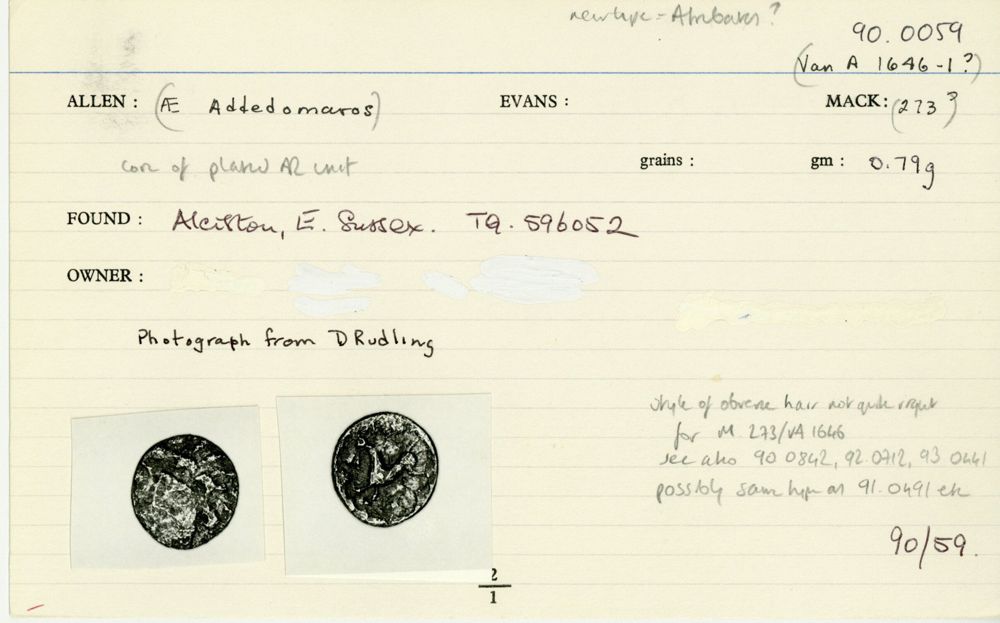 new type = Atrebates?
90.0059
(Van A 1646-1?)
ALLEN: (Æ Addedomaros) EVANS: MACK: (273?)
core of plated AR unit grains: gm: 0.79g
FOUND: Alciston, E. Sussex. TQ. 596052
OWNER:
Photograph from D Rudling
style of obverse hair not quite right
for M 273/VA 1646
see also 90.0842, 92.0712, 93.0441
possibly same type as 91.0491 etc
90/59.
2
1